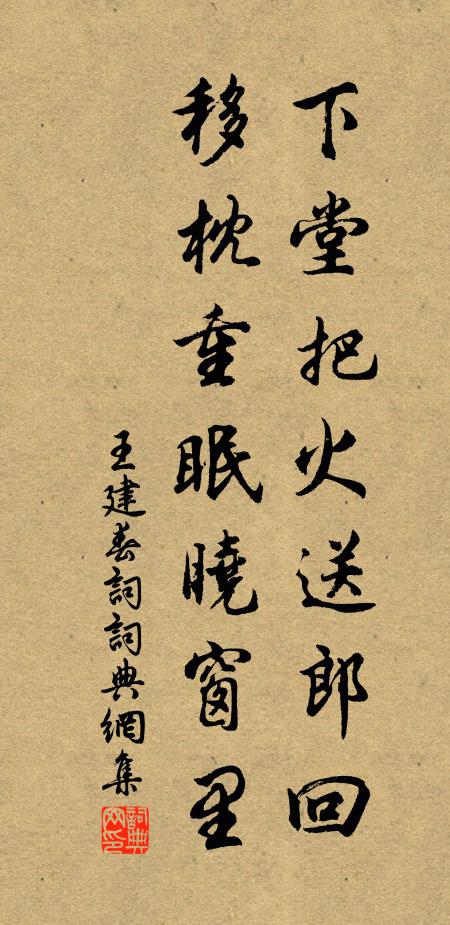 下堂把火送郎回
移枕重眠曉窗里
王建春詞詞典網集
詞典
网印